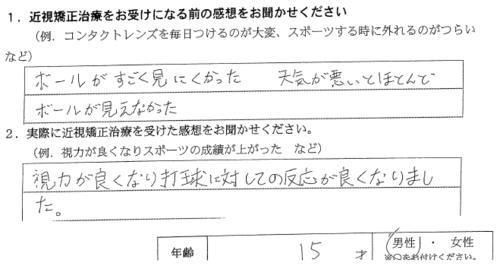 1．近視矯正治療をお受けになる前の感想をお聞かせください
（例．コンタクトレンズを毎日つけるのが大変、スポーツする時に外れるのがつらい
など）
ボールがすごく見にくかった　天気が悪いとほとんど
ボールが見えなかった
2．実際に近視矯正治療を受けた感想をお聞かせください。
（例．視力が良くなりスポーツの成績が上がった　など）
視力が良くなり打球に対しての反応が良くなりまし
た。
年齢　15 才　男性 ・ 女性
※○をお付けください。